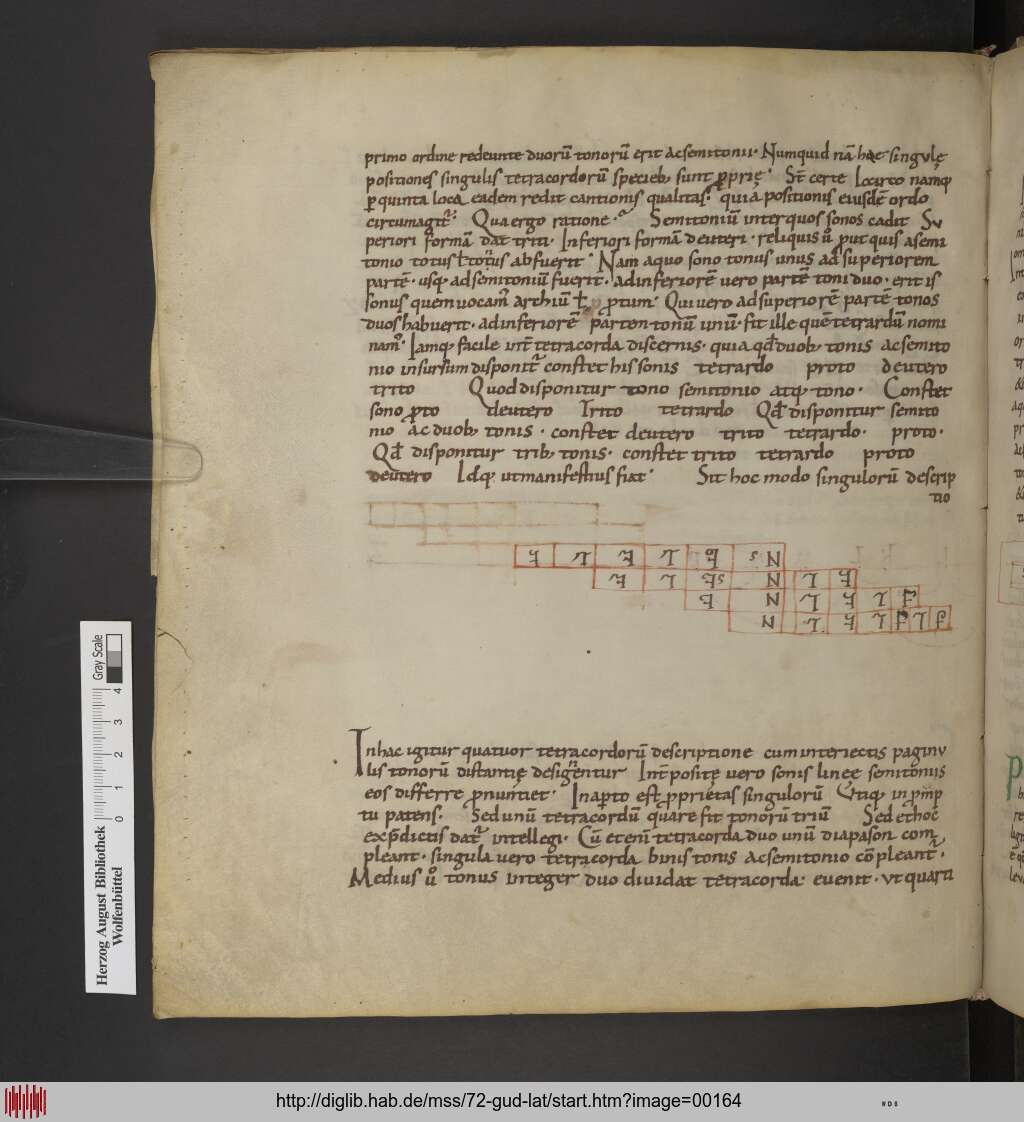 primo ordine redeunte duorū tonorū erit ac semitonii· Numquid nā hęc singulę
positiones singulis tetracordorū specieb; sunt ꝓprię· St̄ certe Locirco namq;
ꝑ quinta loca eadem redit cantionis qualitas· quia positionis eiusdē ordo
circumagit᷑· Qua ergo ratione· Semitoniū inter quos sonos cadit Su
periori formā dat triti· Inferiori formā deuteri· reliquis ū put quis a semi
tonio totus ł totus abfuerit· Nam a quo sono tonus unus ad superiorem
partē· usq; ad semitoniū fuerit· ad inferiorē vero partē toni duo· erit is
sonus quem uocam᷑ archiūm ł ꝓtum· Qui vero ad superiorē partē tonos
duos habuerit· ad inferiorē parten tonū unū· fit ille quē tetrardū nomi
nam᷑· Iamq; facile int̄ tetracorda discernis· quia qđ duob; tonis ac semito
nio in sursum disponit᷑ constet his sonis tetrardo proto deutero
trito Quod disponitur tono semitonio atq; tono· Constet
sono ꝓto deutero Trito tetrardo Qđ disponitur semito
nio ac duob; tonis· constet deutero trito tetrardo· proto·
Qđ disponitur trib; tonis· constet trito tetrardo proto
deutero Idq; ut manifestius fiat· Sit hoc modo singulorū descrip
tio
In hac igitur quatuor tetracordorū descriptione cum interiectis paginu
lis tonorū distantię designentur Int̄ positę vero sonis lineę semitoniis
eos differre ꝓnuntiet· In aꝑto est ꝓprietas singulorū
tu patens· Sed unū tetracordū quare fit tonorū triū Sed et hoc
ex p̄dictis dat᷑ intellegi· Cū etenī tetracorda duo unū diapason com
pleant· singula vero tetracorda binis tonis ac semitonio cōpleant᷑·
Medius ū tonus integer duo dividat tetracorda· evenit· ut quarti
Herzog August Bibliothek
Wolfenbüttel
0 1 2 3 4
Gray Scale
http://diglib.hab.de/mss/72-gud-lat/start.htm?image=00164